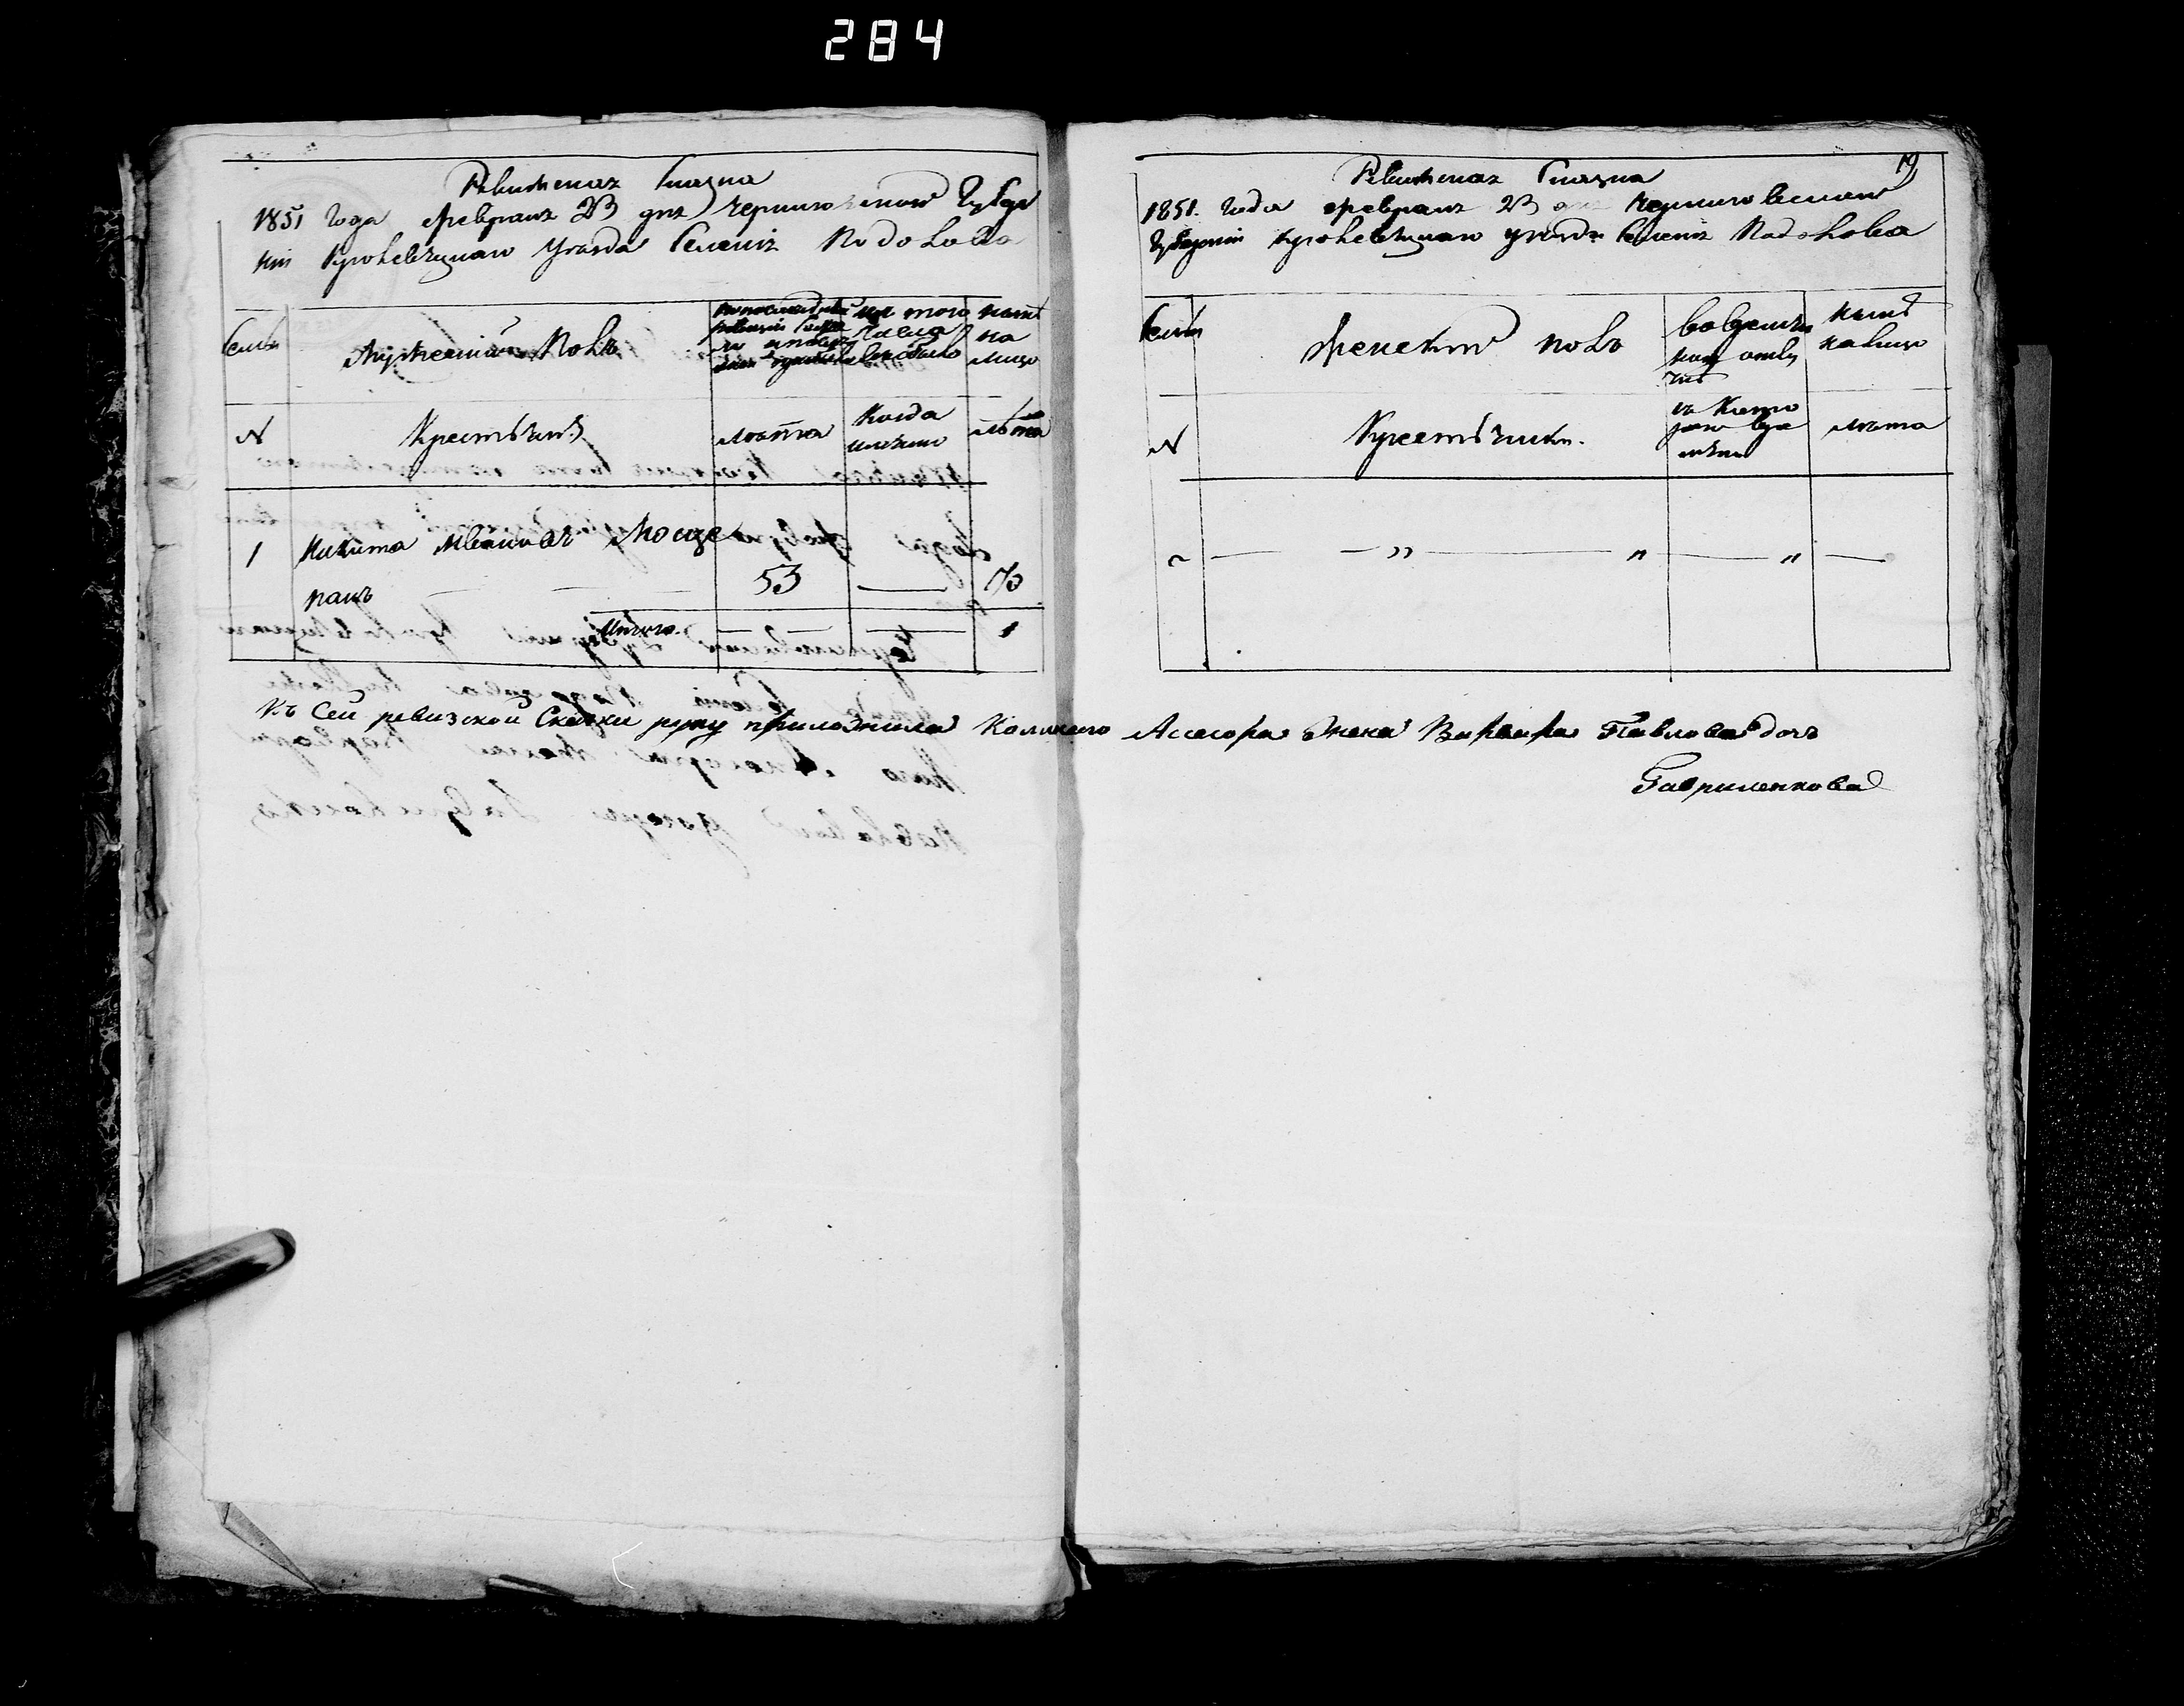 284
Ревизская Сказка
1851 года февраля 23 дня Черниговской Губер
нии Кролевецкаго Уезда Селения Подолова
Семьи
Мужескій Полъ
изъ того
числа
выбыло
ныне
на
лицо
N
Крестьяне
лета
Когда
именно
лета
1
Никита Ивановъ Моцо
панъ — —
53
—
70
Итого. — — — 1
19
Ревизская Сказка
1851. года февраля 23 дня Черниговской
Губернии Кролевецкаго уезда Селения Подолова
Семьи
Женской полъ
Во времен
ной отлу
чке
ныне
налицо
N
Крестьянки.
съ Кото
раго вре
мени
лета
— „ — „ — „ —
Къ Сей ревизской Сказки руку приложила Колижского Асесора Жена Варвара Павлова дочь
Гавриленкова